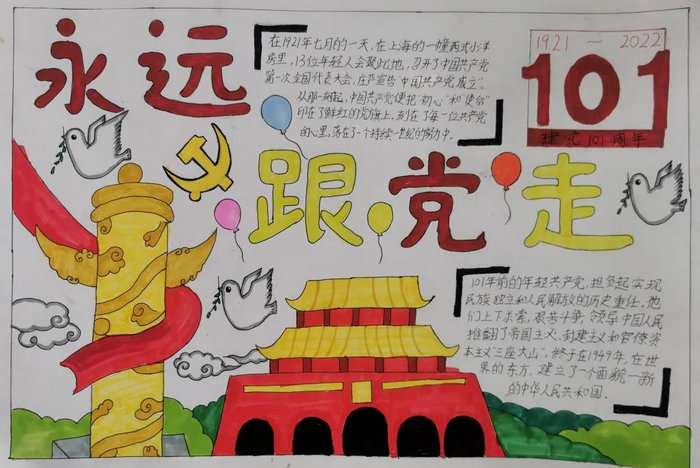 永远
跟党走
在1921年七月的一天，在上海的一幢西式小洋
房里，13位年轻人会聚此地，召开了中国共产党
第一次全国代表大会，庄严宣告"中国共产党成立"。
从那一刻起，中国共产党便把"初心"和"使命"
印在了鲜红的党旗上，刻在了每一位共产党
的心里，落在了一个持续一世纪的努力中。
1921～2022
101
建党101周年
101年前的年轻共产党，担负起实现
民族独立和人民解放的历史重任。他
们上下求索，艰苦斗争，领导中国人民
推翻了帝国主义、封建主义和官僚资
本主义"三座大山"，终于在1949年，在世
界的东方，建立了一个面貌一新
的中华人民共和国。